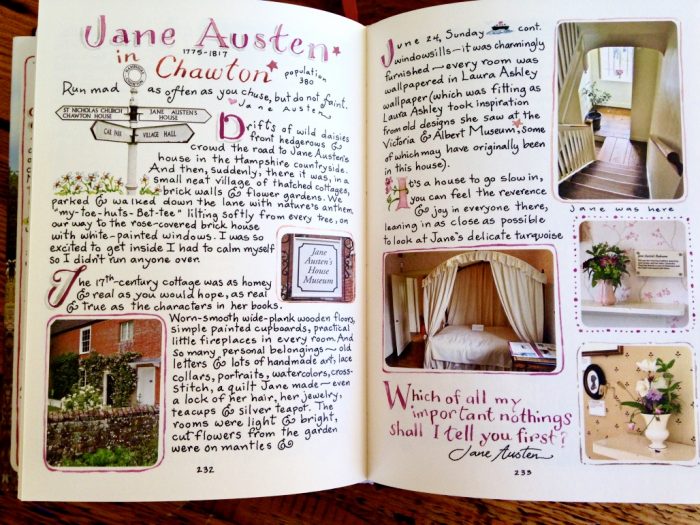 Jane Austen
1775-1817
in Chawton
population
380
Run mad as often as you chuse, but do not faint.
Jane Austen
ST NICHOLAS CHURCH
CHAWTON HOUSE
JANE AUSTEN'S
HOUSE
CAR PARK
VILLAGE HALL
Drifts of wild daisies
front hedgerows &
crowd the road to Jane Austen's
house in the Hampshire countryside.
And then, suddenly, there it was, in a
small neat village of thatched cottages,
brick walls & flower gardens. We
parked & walked down the lane with nature's anthem,
"my-toe-huts-Bet-tee" lilting softly from every tree, on
our way to the rose-covered brick house
with white-painted windows. I was so
excited to get inside I had to calm myself
so I didn't run anyone over.
Jane
Austen's
House
Museum
The 17th-century cottage was as homey
& real as you would hope, as real
& true as the characters in her books.
Worn-smooth wide-plank wooden floors,
simple painted cupboards, practical
little fireplaces in every room. And
so many personal belongings ~ old
letters & lots of handmade art, lace
collars, portraits, watercolors, cross-
stitch, a quilt Jane made ~ even
a lock of her hair, her jewelry,
teacups & silver teapot. The
rooms were light & bright,
cut flowers from the garden
were on mantles &
232
June 24, Sunday cont.
windowsills ~ it was charmingly
furnished ~ every room was
wallpapered in Laura Ashley
wallpaper (which was fitting as
Laura Ashley took inspiration
from old designs she saw at the
Victoria & Albert Museum, some
of which may have originally been
in this house).
It's a house to go slow in,
you can feel the reverence
& joy in everyone there,
leaning in as close as possible
to look at Jane's delicate turquoise
Jane was here
Which of all my
important nothings
shall I tell you first?
Jane Austen
233